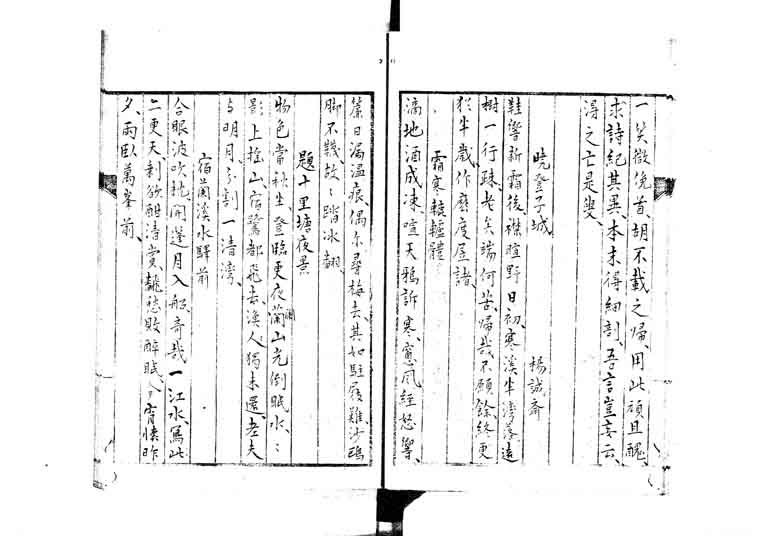 一笑微俛首、胡不載之歸、用此頑且醜、
求詩紀其異、本末得細剖、吾言豈妄云、
得之亡是叟、
曉登子城
楊誠齋
鞋響新霜後、襟暄野日初、寒溪半灣落、遠
樹一行踈、老矣端何苦、歸哉不願餘、終更
猶半歲、作麼度居諸、
霜寒轆轤體
滴地酒成凍、喧天鴉訴寒、窓風經怒響、
簾日濁温痕、偶尓尋梅去、其如駐屐難、沙鷗
脚不襪、故〻踏冰翻、
題十里塘夜景
物色當秋生、登臨更夜闌、山光倒眠水、〻
影上摇山、宿鷺都飛去、漁人獨未還、老夫
与明月、分割一清灣、
宿蘭溪水驛前
合眼波吹枕、開蓬月入船、奇哉一江水、寫此
二更天、剩欲酣清賞、翻愁敗醉眠、今宵懐昨
夕、雨臥萬峯前、